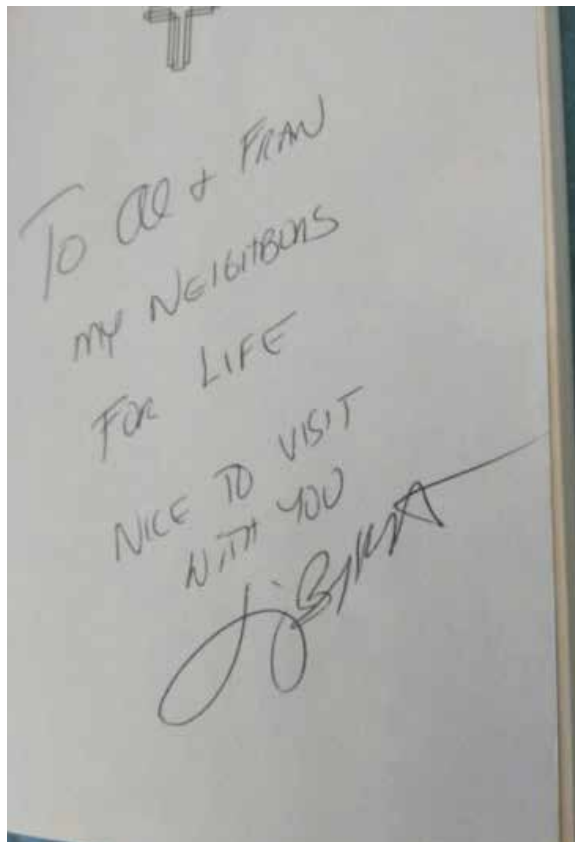 To Al + FRAN
MY NEIGHBORS
FOR LIFE
NICE TO VISIT
WITH YOU